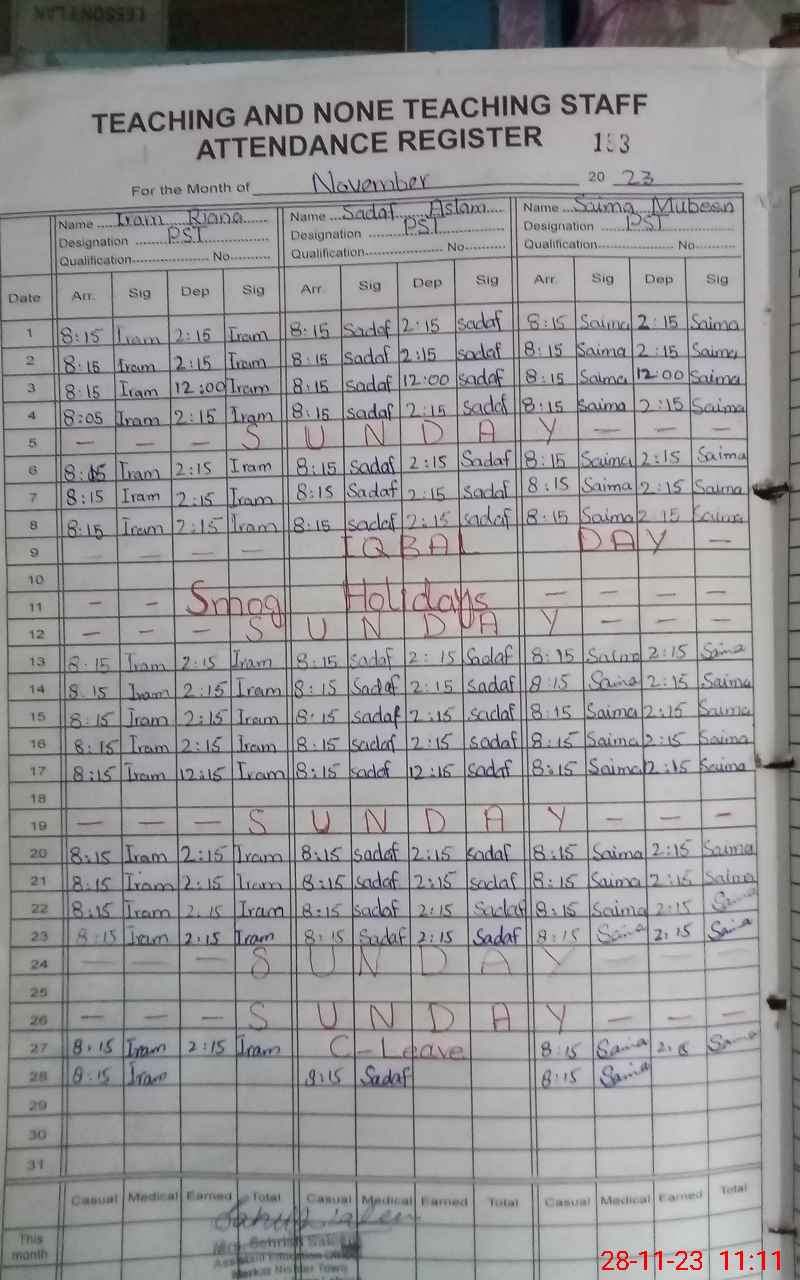 LESSON PLAN
TEACHING AND NONE TEACHING STAFF
ATTENDANCE REGISTER 153
For the Month of November 20 23
Name Iram Riana Name Sadaf Aslam Name Saima Mubeen
Designation PST Designation PST Designation PST
Qualification No Qualification No Qualification No
Date Arr. Sig Dep Sig Arr. Sig Dep Sig Arr. Sig Dep Sig
1 8:15 Iram 2:15 Iram 8:15 Sadaf 2:15 sadaf 8:15 Saima 2:15 Saima
2 8:15 Iram 2:15 Iram 8:15 Sadaf 2:15 sadaf 8:15 Saima 2:15 Saima
3 8:15 Iram 12:00 Iram 8:15 Sadaf 12:00 sadaf 8:15 Saima 12:00 Saima
4 8:05 Iram 2:15 Iram 8:15 sadaf 2:15 sadaf 8:15 Saima 2:15 Saima
5 — — — S U N D A Y — — —
6 8:15 Iram 2:15 Iram 8:15 Sadaf 2:15 Sadaf 8:15 Saima 2:15 Saima
7 8:15 Iram 2:15 Iram 8:15 Sadaf 2:15 sadaf 8:15 Saima 2:15 Saima
8 8:15 Iram 2:15 Iram 8:15 sadaf 2:15 sadaf 8:15 Saima 2:15 Saima
9 — — — — IQBAL DAY —
10
11 — — Smog Holidays — — — —
12 — — — S U N D A Y — — —
13 8:15 Iram 2:15 Iram 8:15 sadaf 2:15 Sadaf 8:15 Saima 2:15 Saima
14 8:15 Iram 2:15 Iram 8:15 Sadaf 2:15 sadaf 8:15 Saima 2:15 Saima
15 8:15 Iram 2:15 Iram 8:15 sadaf 2:15 sadaf 8:15 Saima 2:15 Saima
16 8:15 Iram 2:15 Iram 8:15 sadaf 2:15 sadaf 8:15 Saima 2:15 Saima
17 8:15 Iram 12:15 Iram 8:15 sadaf 12:15 sadaf 8:15 Saima 12:15 Saima
18
19 — — — S U N D A Y — — —
20 8:15 Iram 2:15 Iram 8:15 sadaf 2:15 sadaf 8:15 Saima 2:15 Saima
21 8:15 Iram 2:15 Iram 8:15 sadaf 2:15 sadaf 8:15 Saima 2:15 Saima
22 8:15 Iram 2:15 Iram 8:15 sadaf 2:15 Sadaf 8:15 Saima 2:15 Saima
23 8:15 Iram 2:15 Iram 8:15 Sadaf 2:15 Sadaf 8:15 Saima 2:15 Saima
24 — — — S U N D A Y — — —
25
26 — — — S U N D A Y — — —
27 8:15 Iram 2:15 Iram C-Leave 8:15 Saima 2:15 Saima
28 8:15 Iram 8:15 Sadaf 8:15 Saima
29
30
31
Casual Medical Earned Total Casual Medical Earned Total Casual Medical Earned Total
This
month
28-11-23 11:11